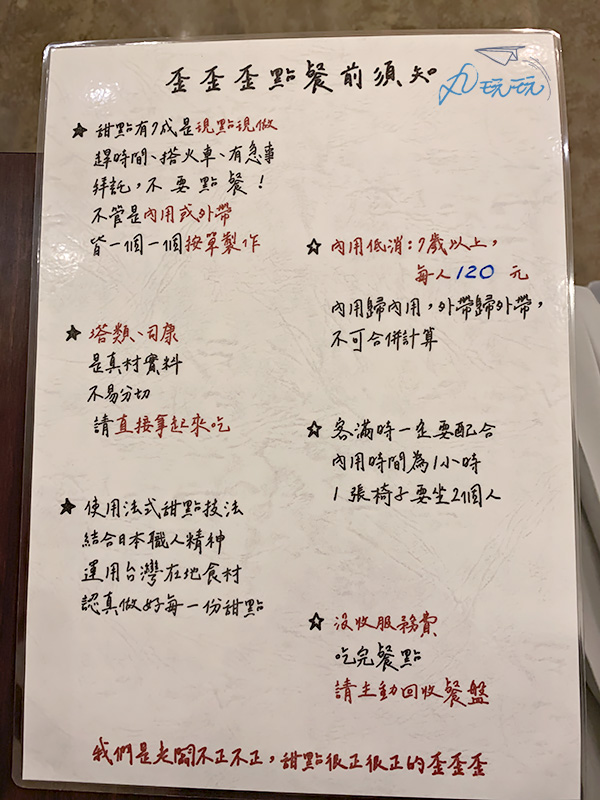 歪歪歪點餐前須知
丸玩玩
★ 甜點有7成是現點現做
趕時間、搭火車、有急事
拜託，不要點餐！
不管是內用或外帶
皆一個一個按單製作
★ 塔類、司康
是真材實料
不易分切
請直接拿起來吃
★ 使用法式甜點技法
結合日本職人精神
運用台灣在地食材
認真做好每一份甜點
☆ 內用低消：7歲以上，
每人120元
內用歸內用，外帶歸外帶，
不可合併計算
☆ 客滿時一定要配合
內用時間為1小時
1張椅子要坐2個人
☆ 沒收服務費
吃完餐點
請主動回收餐盤
我們是老闆不正不正，甜點很正很正的歪歪歪